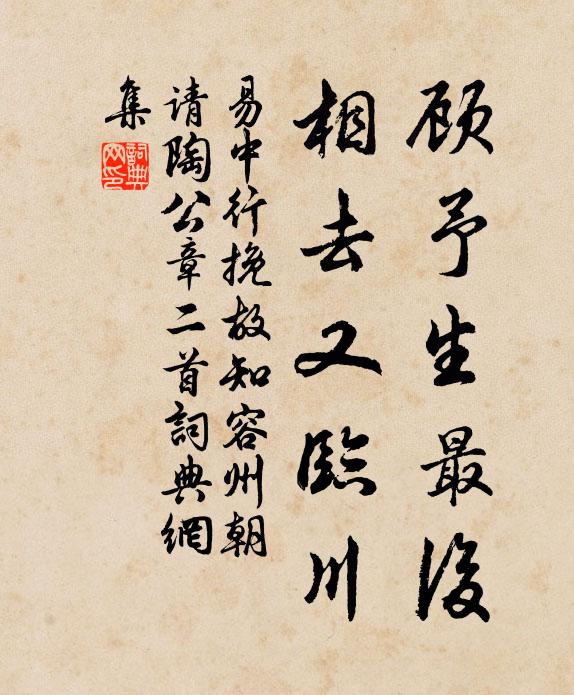 顾予生最后
相去又臨川
易中行挽故知容州朝
请陶公章二首詞典網
集
詞典網印